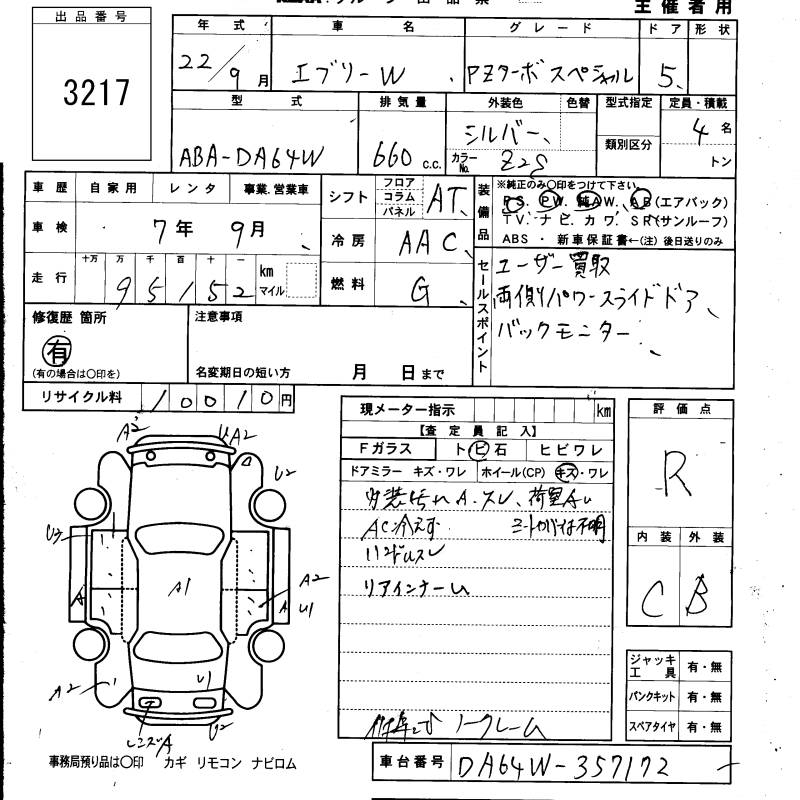 出品番号
3217
主催者用
年式 車名 グレード ドア 形状
22/9月 エブリーW PZターボスペシャル 5
型式 排気量 外装色 色替 型式指定 定員・積載
ABA-DA64W 660 c.c. シルバー 類別区分 4名
カラーNo. Z2S トン
車歴 自家用 レンタ 事業.営業車
車検 7年 9月
走行 十万 万 千 百 十 一 km マイル
95152
シフト フロア コラム パネル AT
冷房 AAC
燃料 G
装備品
※純正のみ〇印をつけて下さい。
PS. PW. 純AW. AB(エアバック)
TV. ナビ. カワ. SR(サンルーフ)
ABS ・ 新車保証書←(注) 後日送りのみ
セールスポイント
ユーザー買取
両側パワースライドドア、
バックモニター
修復歴 箇所
有
(有の場合は〇印を)
注意事項
名変期日の短い方 月 日まで
リサイクル料 10010円
現メーター指示 km
【査定員記入】
Fガラス トビ石 ヒビワレ
ドアミラー キズ・ワレ ホイール(CP) キズ・ワレ
内装汚れA.スレ、荷室A
AC冷えず シートカバー下不明
ハンドルスレ
リアインナーU
ノークレーム
評価点
R
内装 外装
C B
ジャッキ工具 有・無
パンクキット 有・無
スペアタイヤ 有・無
A2 U A2
U2
U3
A
A1
A2
A U1
A2
U1
レンズA
U2
事務局預り品は〇印 カギ リモコン ナビロム
車台番号 DA64W-357172